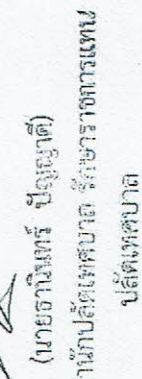 (นายธานินทร์ ปัญญาดี)
านักปลัดเทศบาล รักษาราชการแทน
ปลัดเทศบาล